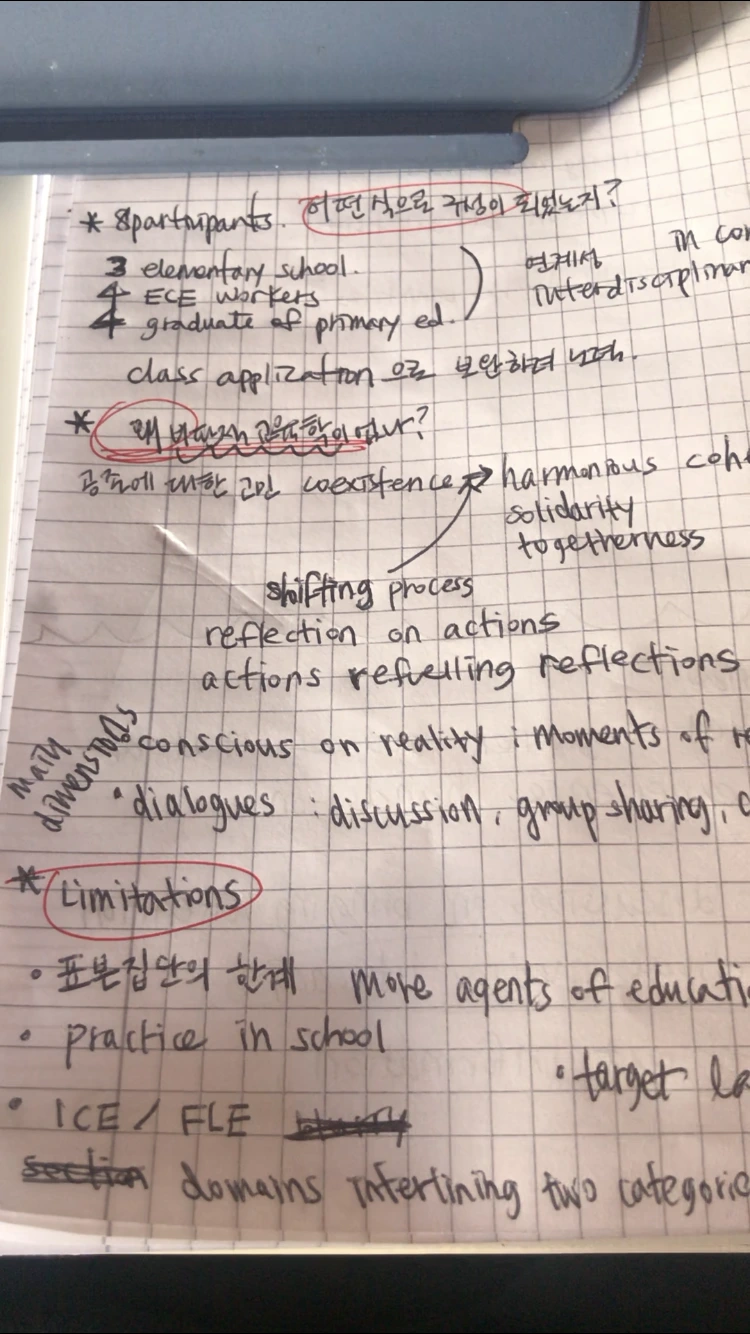 * 8 participants. 어떤 식으로 구성이 되었는지?
3 elementary school.
4 ECE workers
4 graduate of primary ed.
연계성 in
class application 으로 보완하려 노력.
* 왜 없나?
공존에 대한 고민 coexistence → harmonious
solidarity
togetherness
shifting process
reflection on actions
actions refuelling reflections
main
dimensions
conscious on reality : moments of
• dialogues : discussion, group sharing,
* Limitations
• 표본집단의 한계 more agents of
• practice in school
• target
• ICE / FLE
section domains intertining two